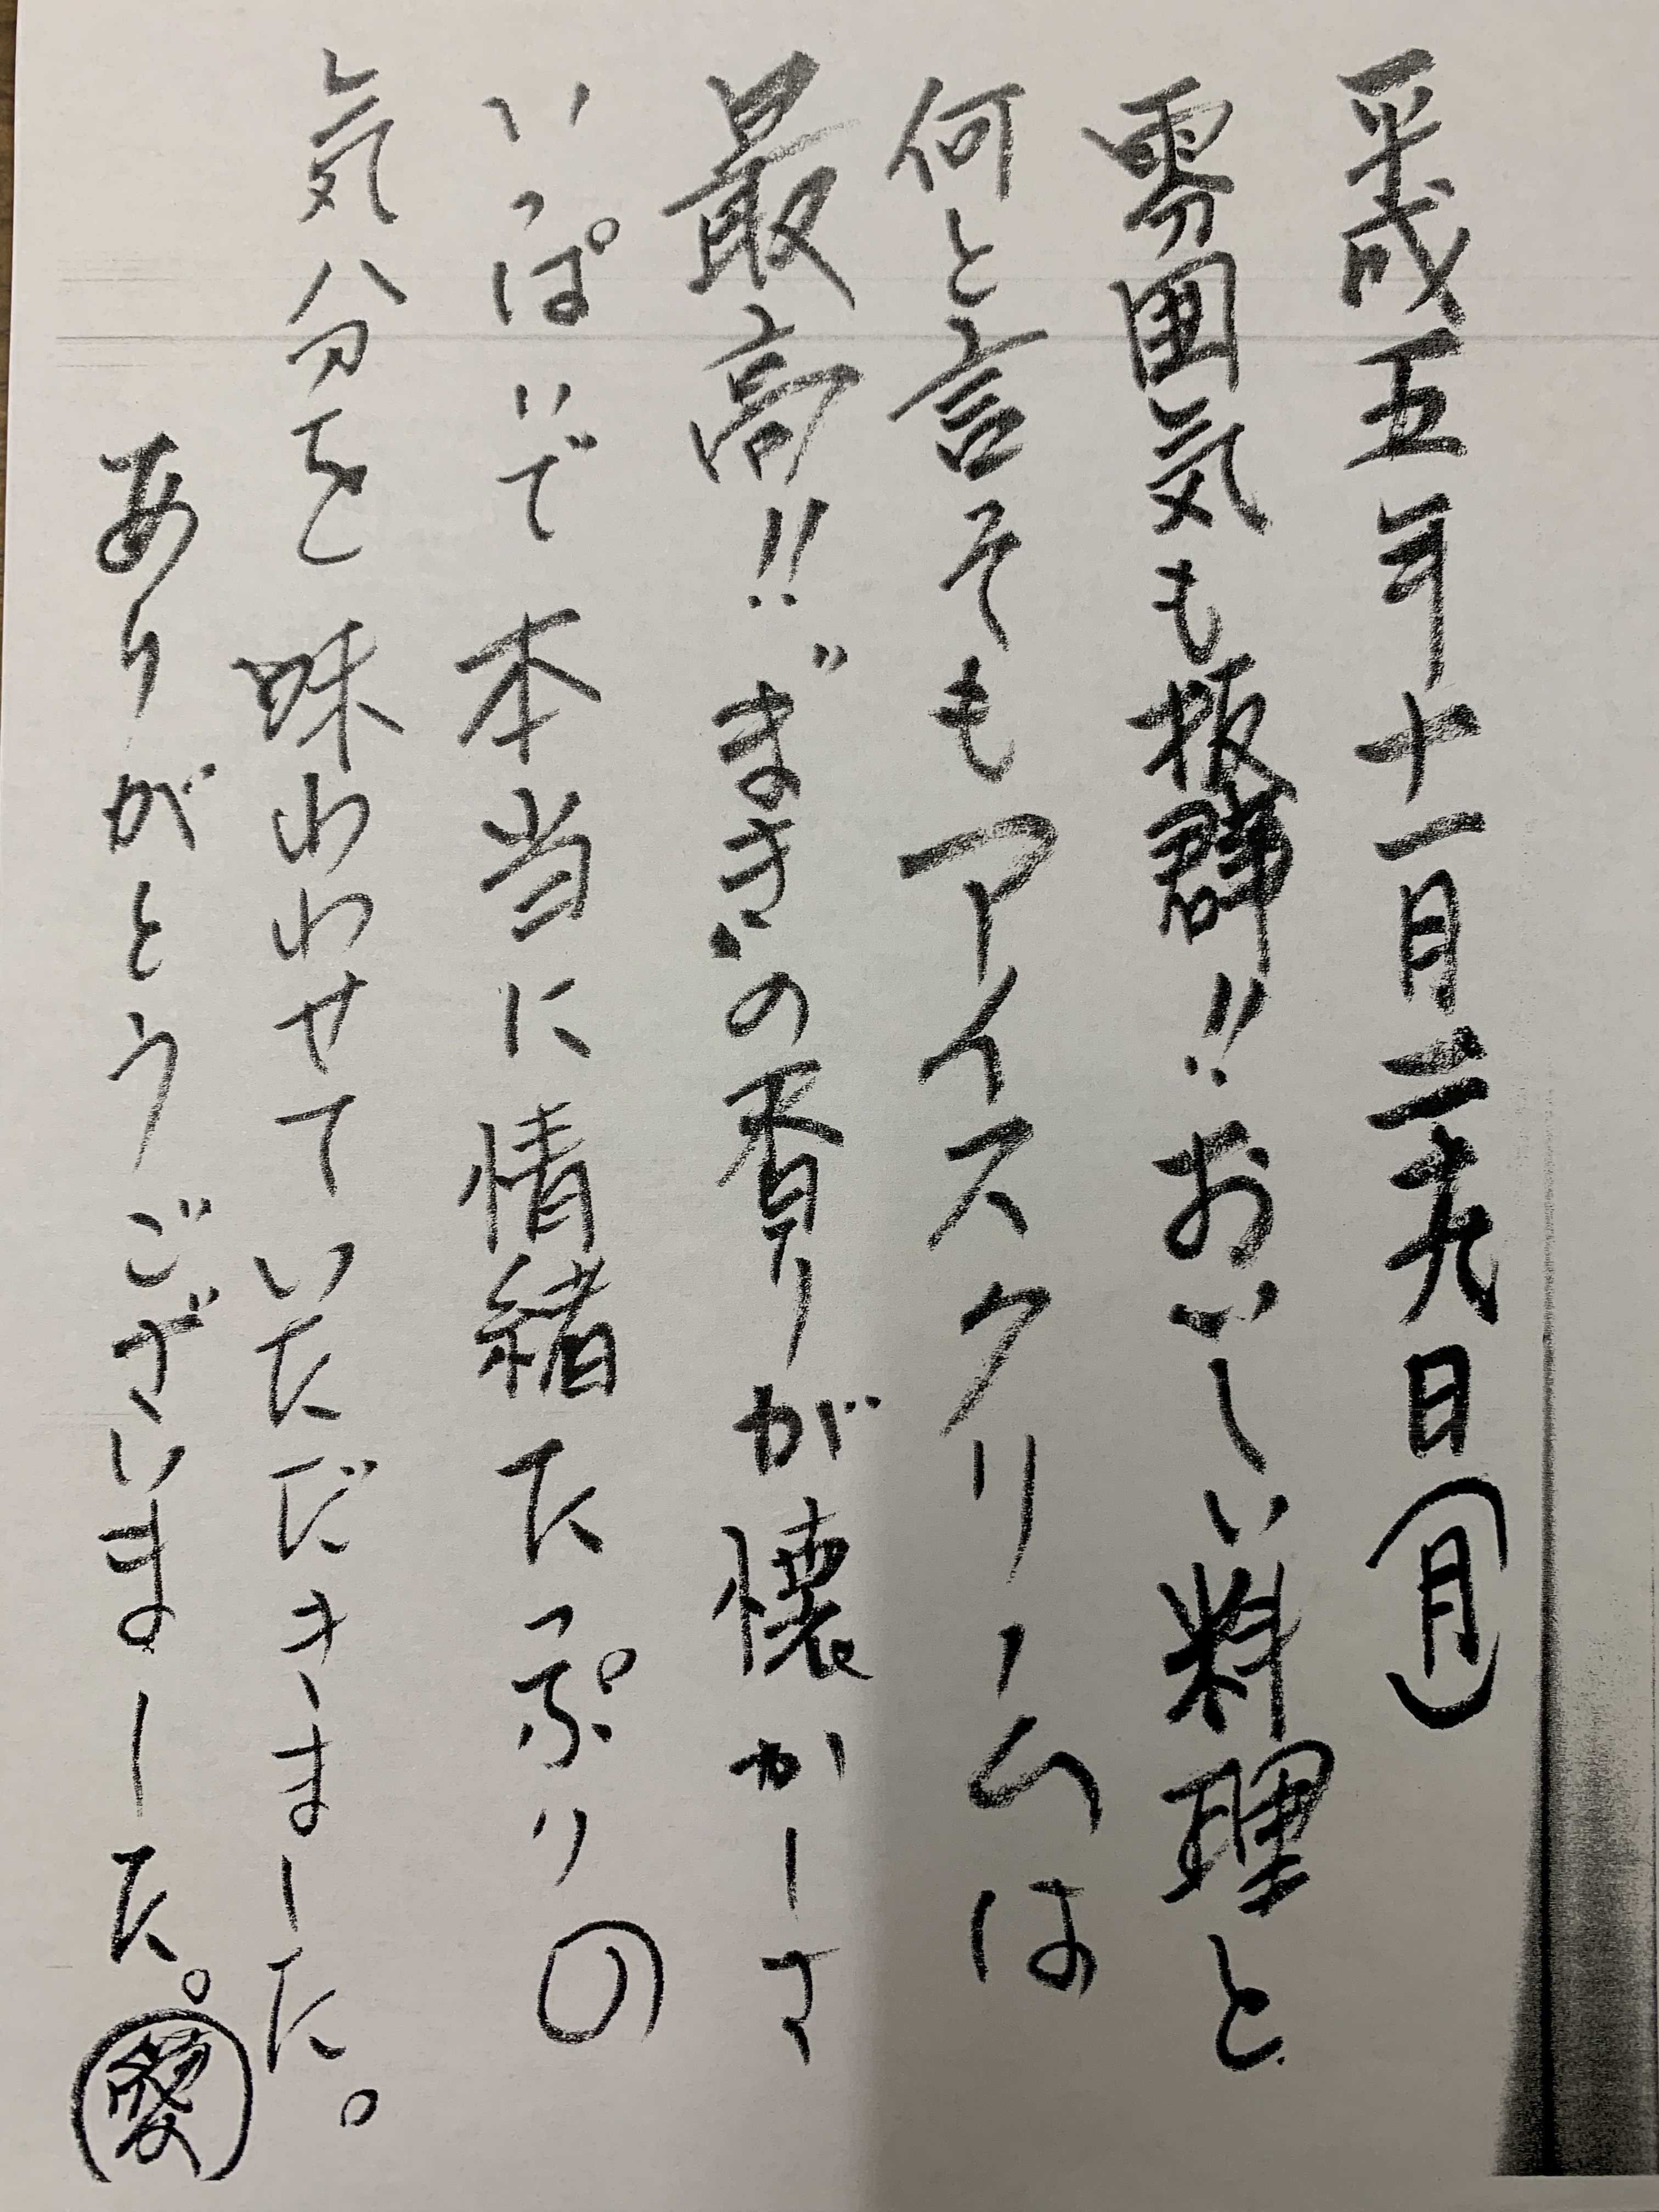 平成五年十一月二十九日(月)
雰囲気も抜群!!おいしい料理と
何と言そもアイスクリームは
最高!!〝まき〟の香りが懐かしさ
いっぱいで本当に情緒たっぷりの
気分を味わわせていただきました。
ありがとうございました。